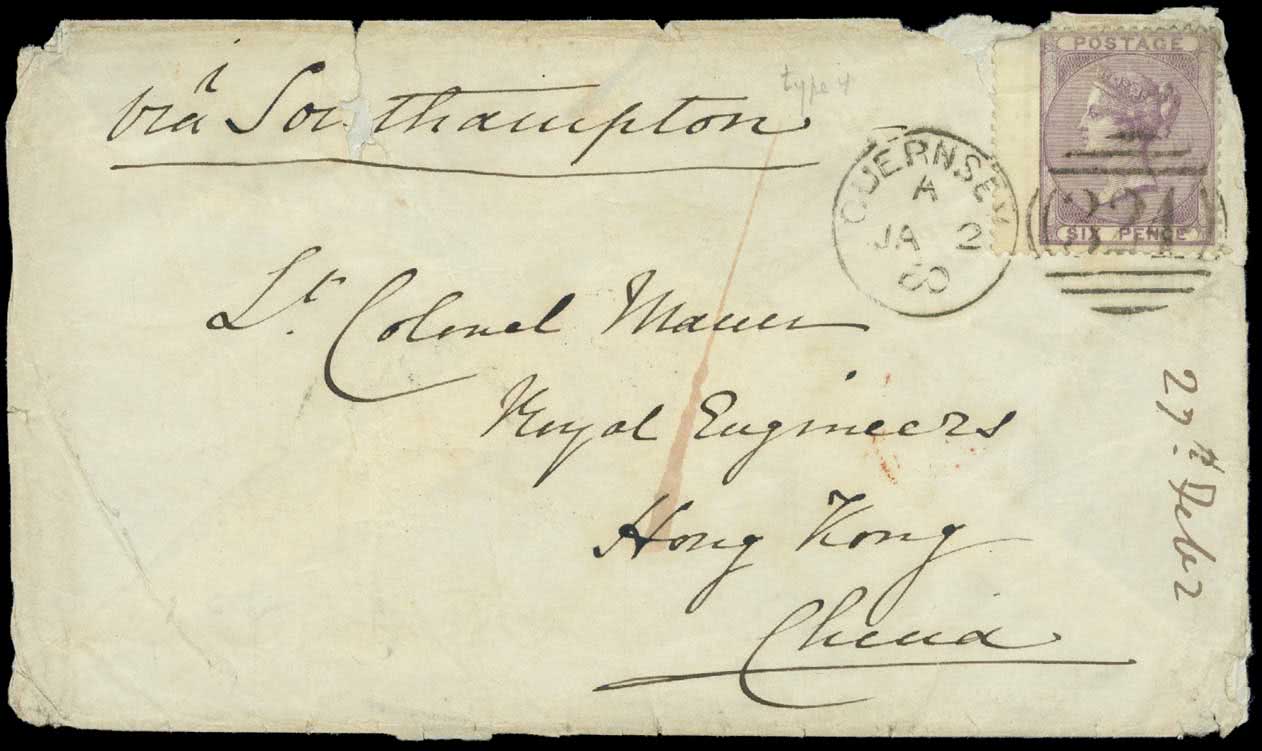 via Southampton
type 4
POSTAGE
SIX PENCE
324
GUERNSEY
A
JA 2
60
Lt. Colonel Mann
Royal Engineers
Hong Kong
China
27th Febr
1